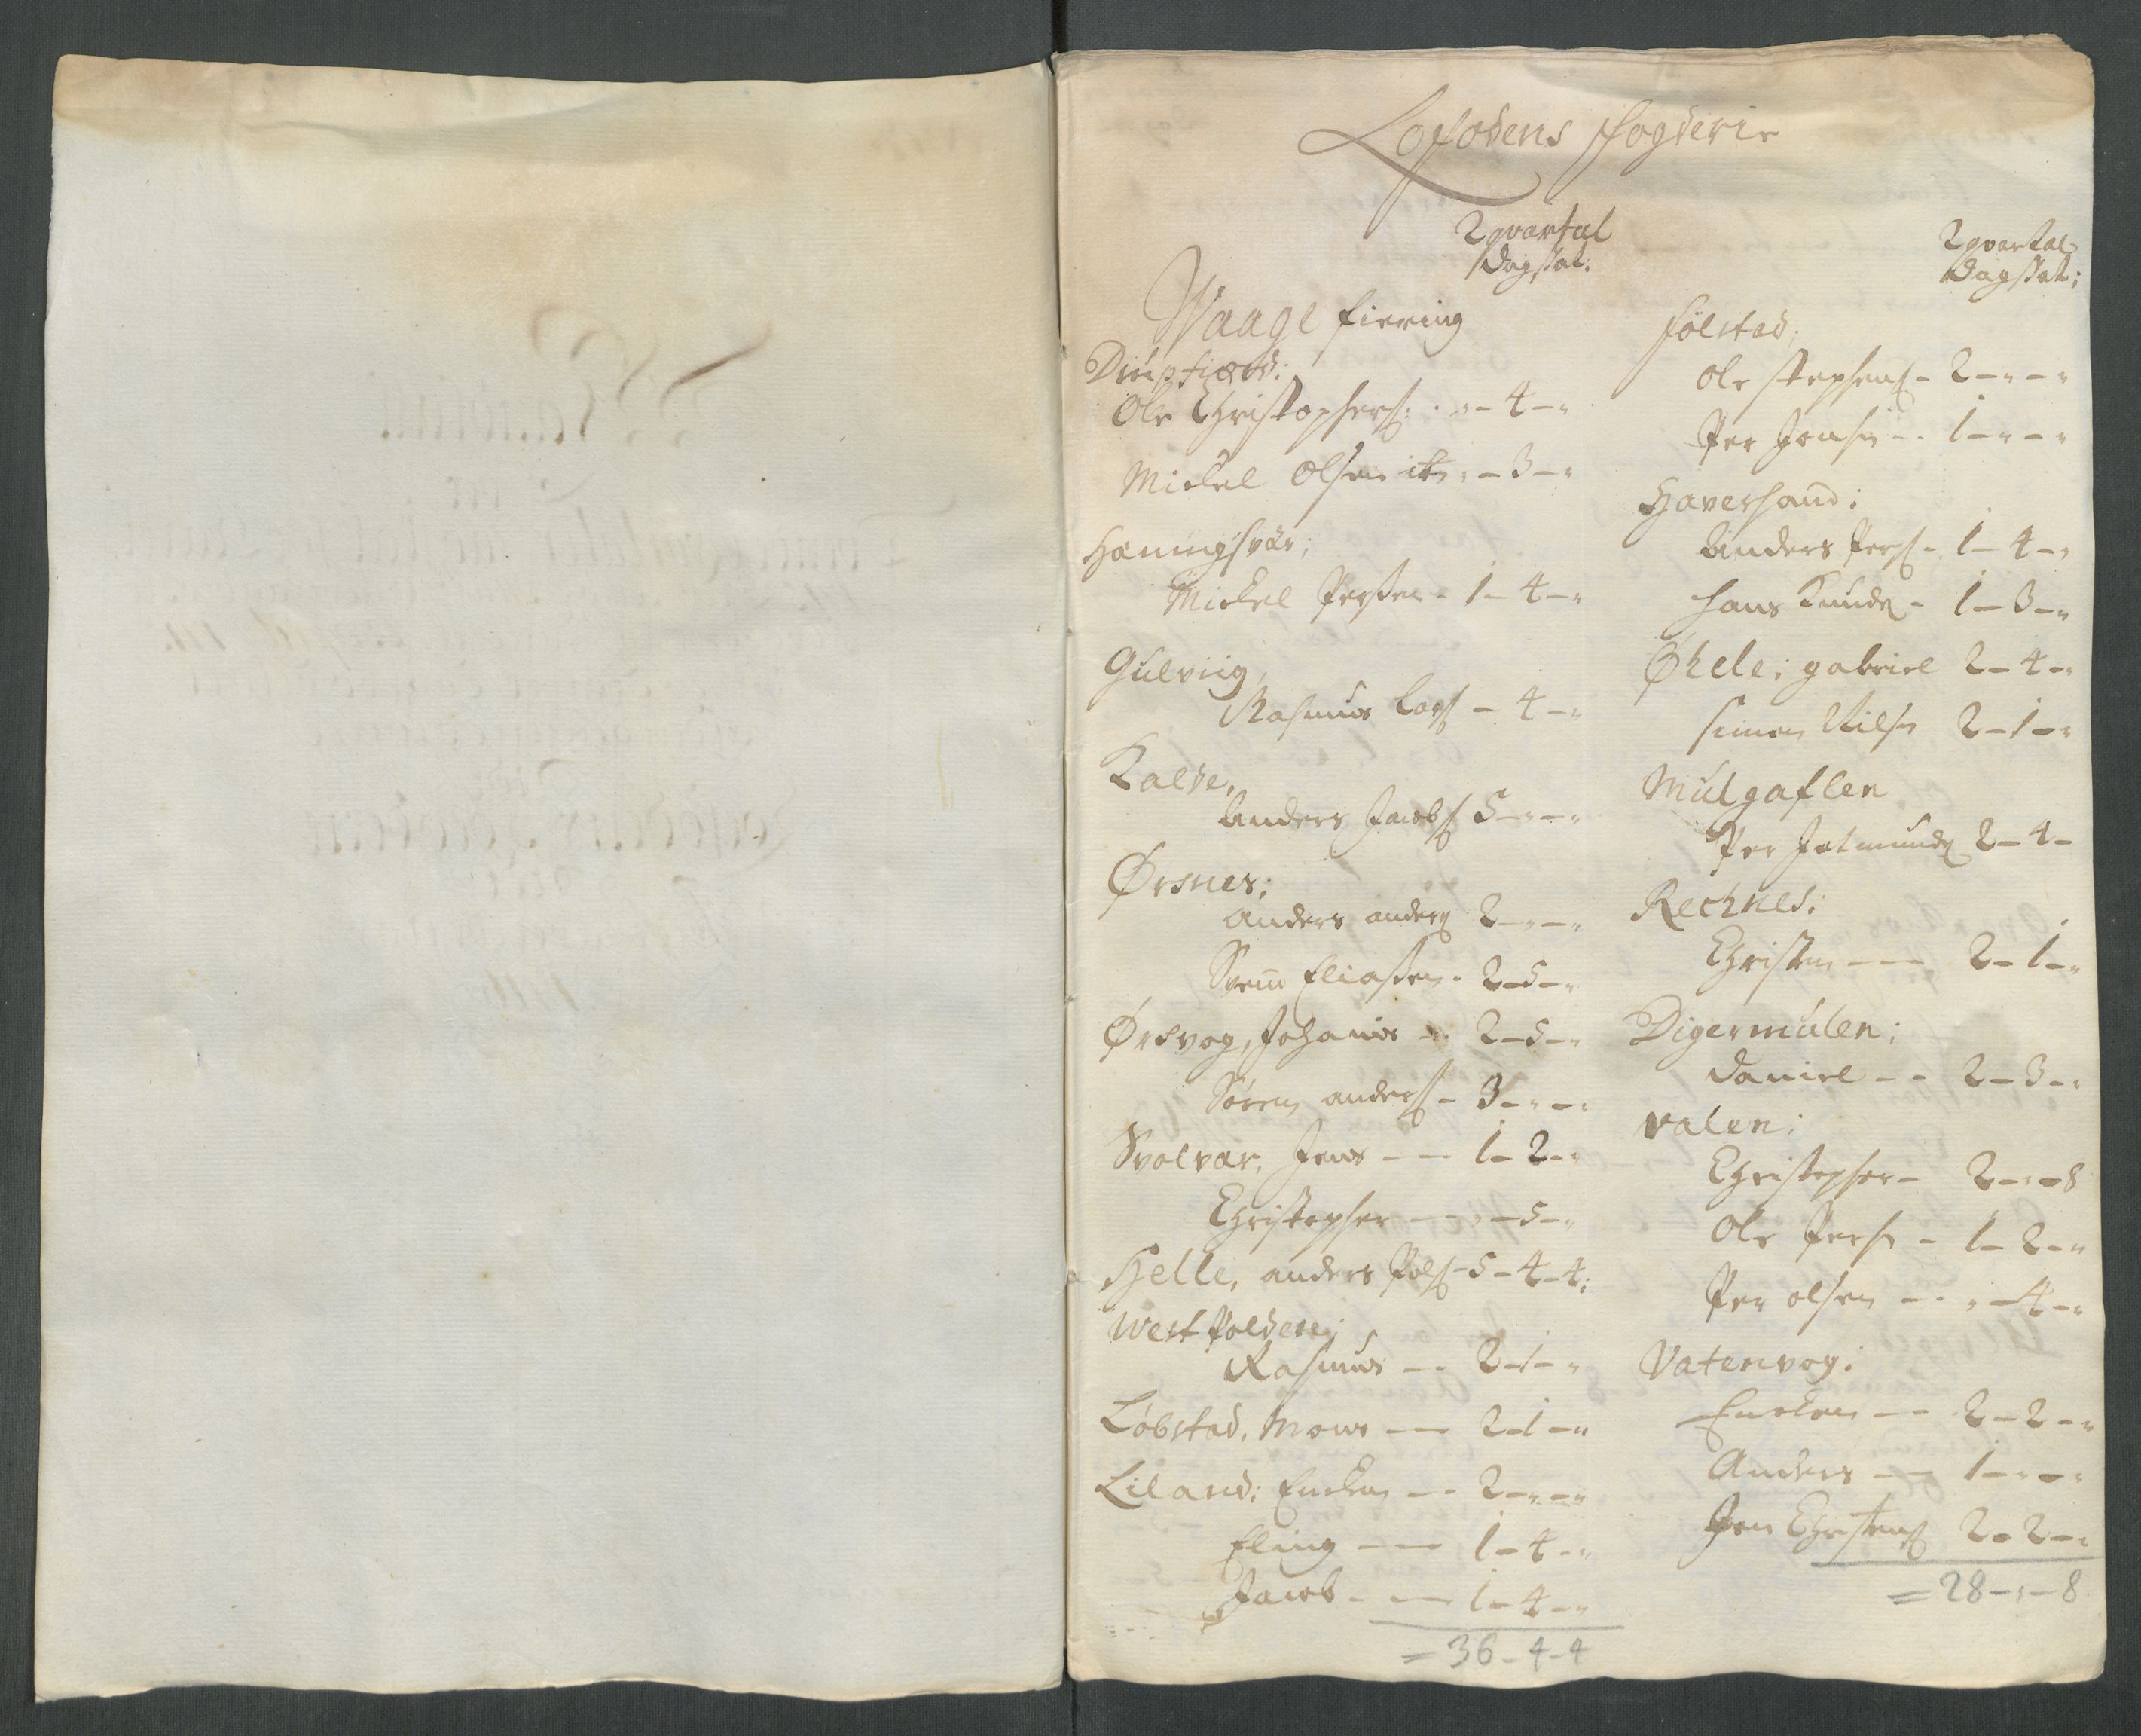 Lofodens fogderie
2 qvartal
dagskat:
Waage fiering
Diupfiord:
Ole Christophers: " - 4 - "
Mickel Olsen " - 3 - "
Haningsvær;
Mickel Persen - 1 - 4 - "
Gulviig,
Rasmus Lars - 4 - "
Kalde,
Anders Jacobs 5 - " - "
Ørsnes;
Anders anders 2 - " - "
Svenn Eliasen - 2 - 5 - "
Ørsvog, Johanis - 2 - 5 - "
Sören anders - 3 - " - "
Svolvær, Jens - - 1 - 2 - "
Christopher - - " - 5 - "
Hjelle, anders Pols - 5 - 4 - 4;
West Poldene;
Rasmus - - 2 - 1 - "
Löbstad, Mons - - 2 - 1 - "
Liland; Encken - - 2 - " - "
Eling - - 1 - 4 - "
Jacob - - 1 - 4 - "
= 36 - 4 - 4
2 qvartal
dagskat;
fölstad;
Ole Stephens - 2 - " - "
Per Jonsen - - 1 - " - "
Haversand;
Anders Pers - 1 - 4 - "
Hans Knuds - 1 - 3 - "
Øhele; gabriel 2 - 4 - "
Simen Nilsn 2 - 1 - "
Mulgaflen
Per Jetmunds 2 - 4 -
Rechnes;
Christen - - 2 - 1 - "
Digermulen;
Daniel - - 2 - 3 - "
Valen;
Christopher - 2 - " - 8
Ole Persn - 1 - 2 - "
Per olsen - - " - 4 - "
Vatenvog;
Encken - - 2 - 2 - "
Anders - - 1 - " - "
Jen Christens 2 - 2 - "
= 28 - " - 8